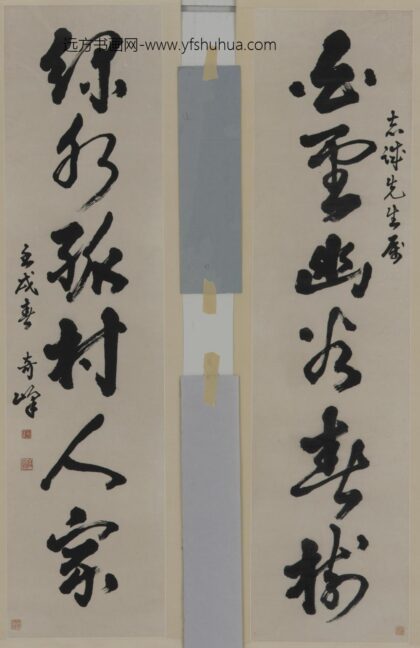 远方书画网-www.yfshuhua.com
志誠先生属
白雲幽谷春樹
綠水孤村人家
壬戌春 奇峰